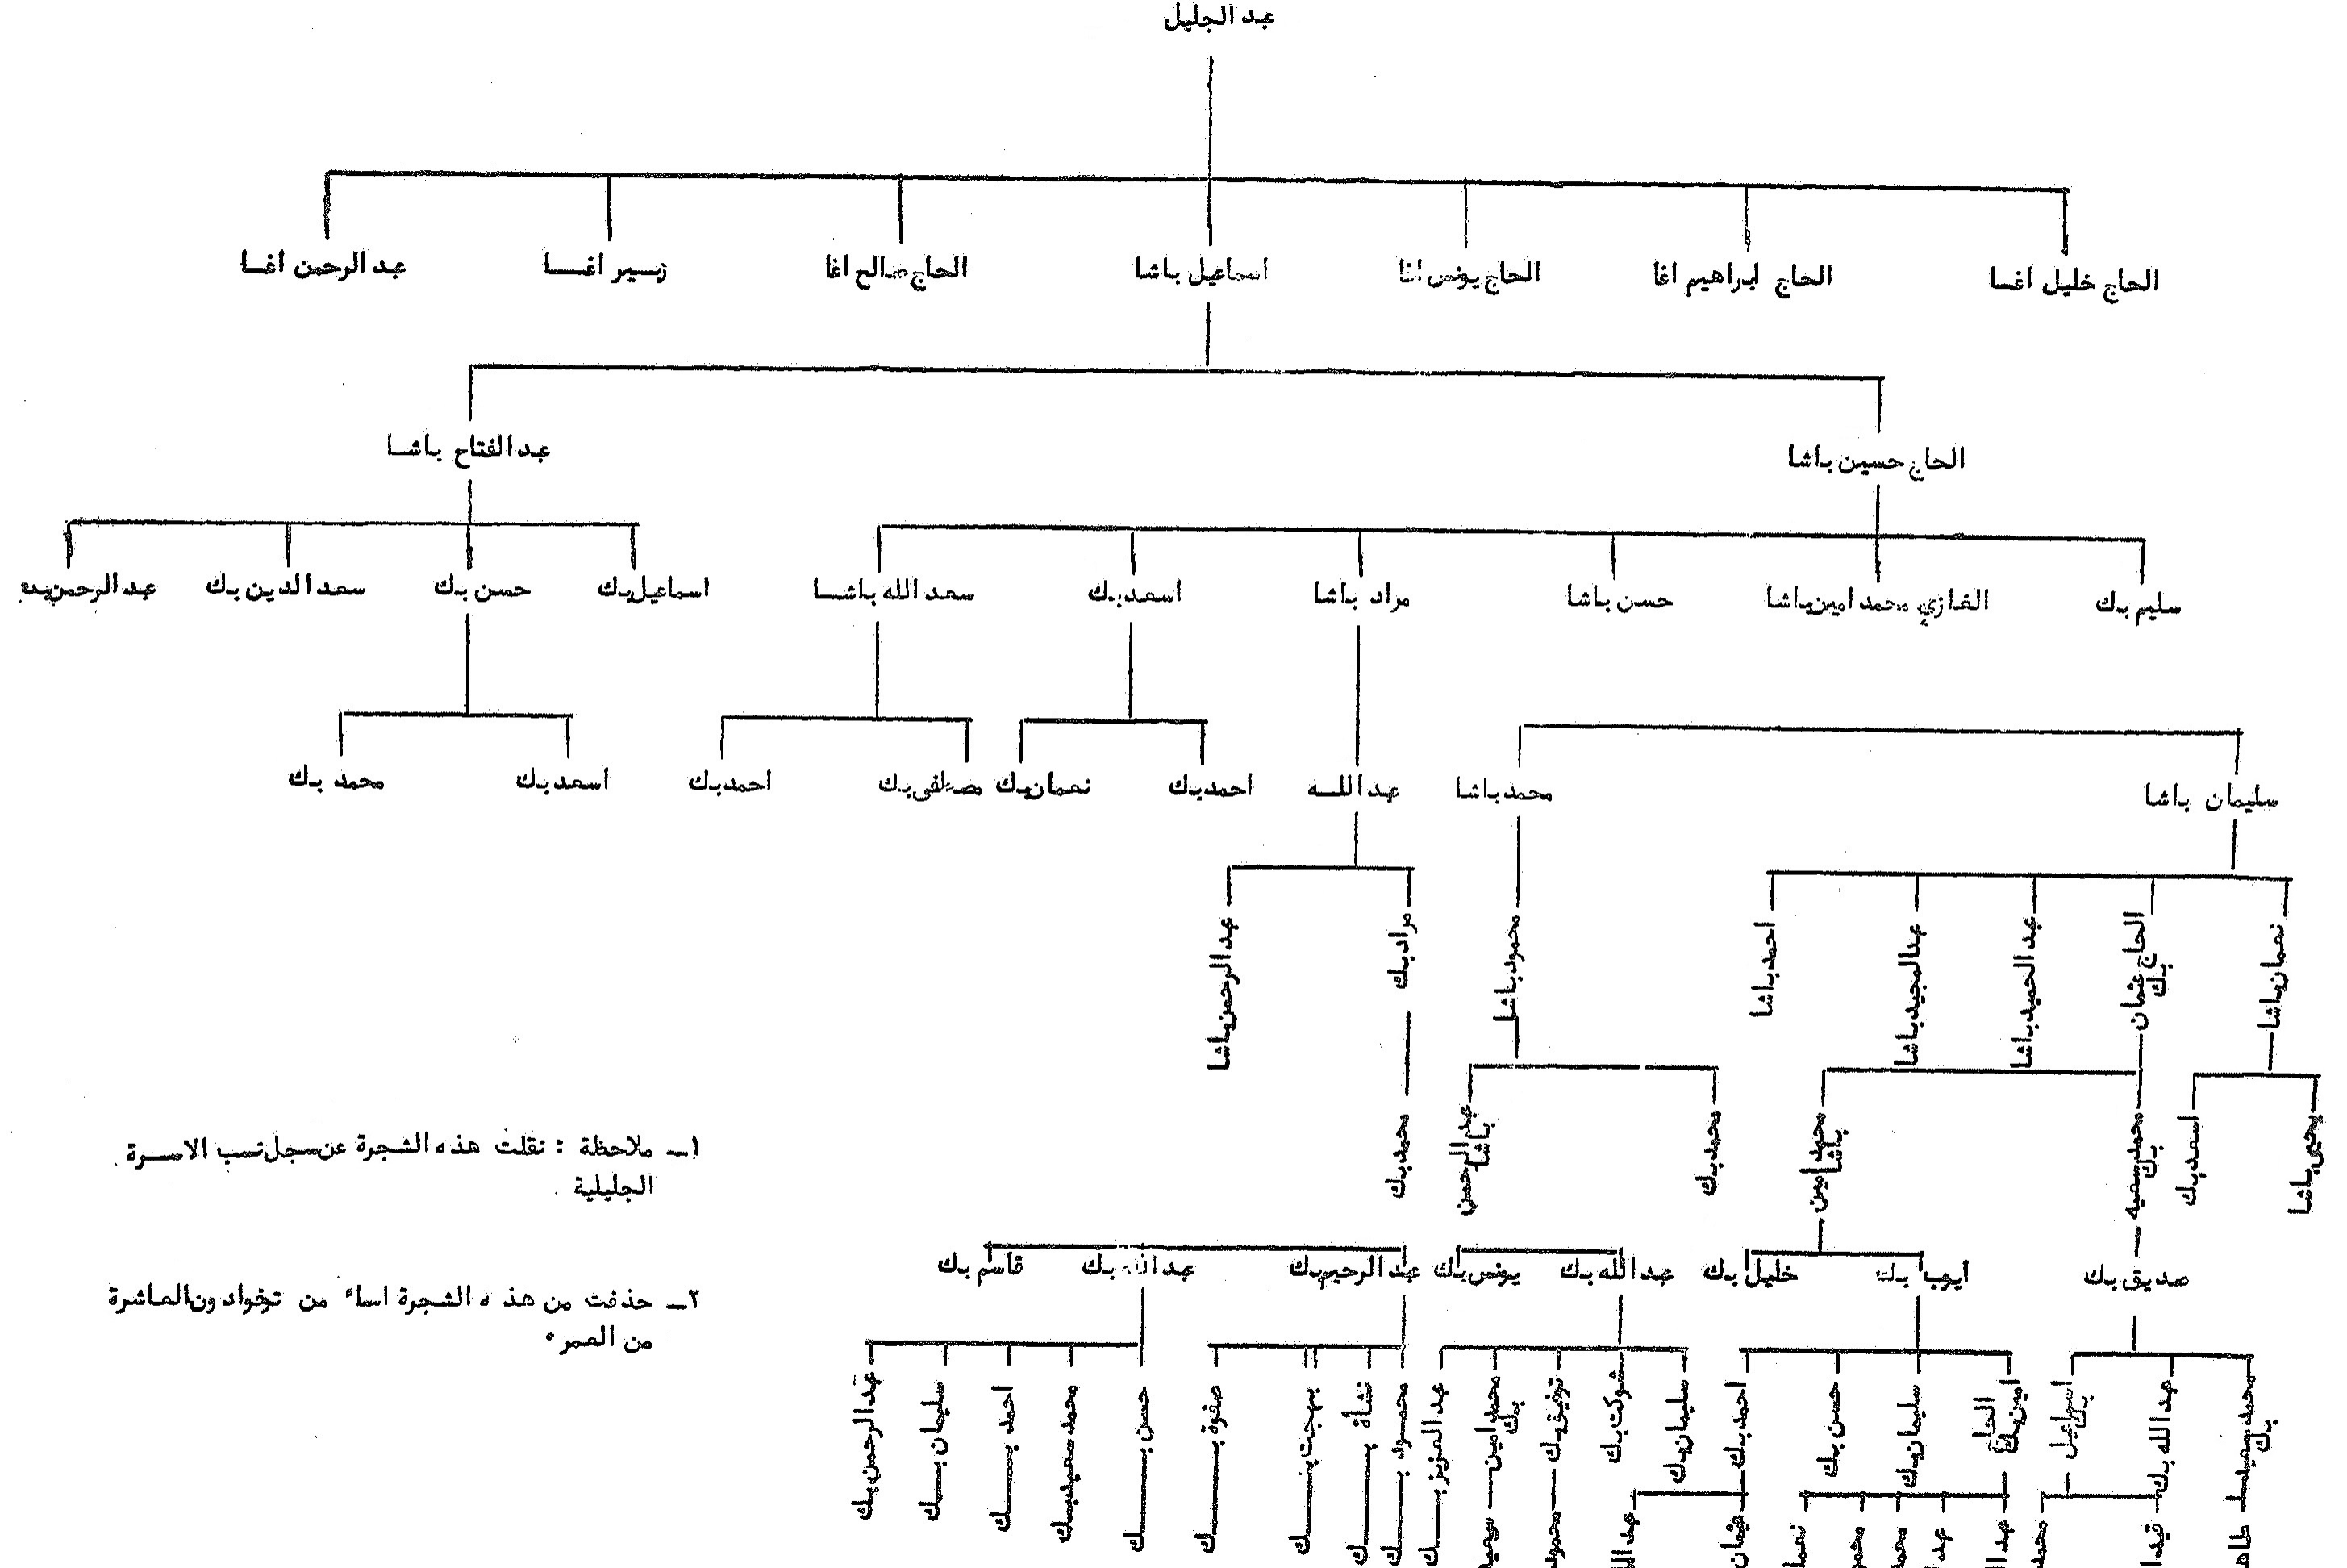 عبد الجليل
الحاج خليل اغا
الحاج ابراهيم اغا
الحاج يونس اغا
اسماعيل باشا
الحاج صالح اغا
زبير اغا
عبد الرحمن اغا
الحاج حسين باشا
عبد الفتاح باشا
سليم بك
الغازي محمد امين باشا
حسن باشا
مراد باشا
اسعد بك
سعد الله باشا
اسماعيل بك
حسن بك
سعد الدين بك
عبد الرحمن بك
سليمان باشا
محمد باشا
عبد الله
احمد بك
نعمان بك
مصطفى بك
احمد بك
اسعد بك
محمد بك
نعمان باشا
الحاج عثمان بك
عبد الحميد باشا
عبد المجيد باشا
احمد باشا
محمود باشا
مراد بك
عبد الرحمن باشا
يحيى باشا
اسعد بك
محمد سعيد بك
محمد امين باشا
محمد بك
عبد الرحمن باشا
محمد بك
صديق بك
ايوب بك
خليل بك
عبد الله بك
يونس بك
عبد الرحيم بك
عبد الله بك
قاسم بك
محمد سعيد بك
عبد الله بك
اسماعيل بك
الحاج امين بك
سليمان بك
حسن بك
احمد بك
سليمان بك
شوكت بك
توفيق بك
محمد امين بك
عبد العزيز بك
محمود بك
نشأة بك
بهجت بك
صفوة بك
حسن بك
محمد سعيد بك
احمد بك
سليمان بك
عبد الرحمن بك
١ــ ملاحظة : نقلت هذه الشجرة عن سجل نسب الاسرة
الجليلية .
٢ــ حذفت من هذه الشجرة اسماء من توفوا دون العاشرة
من العمر •